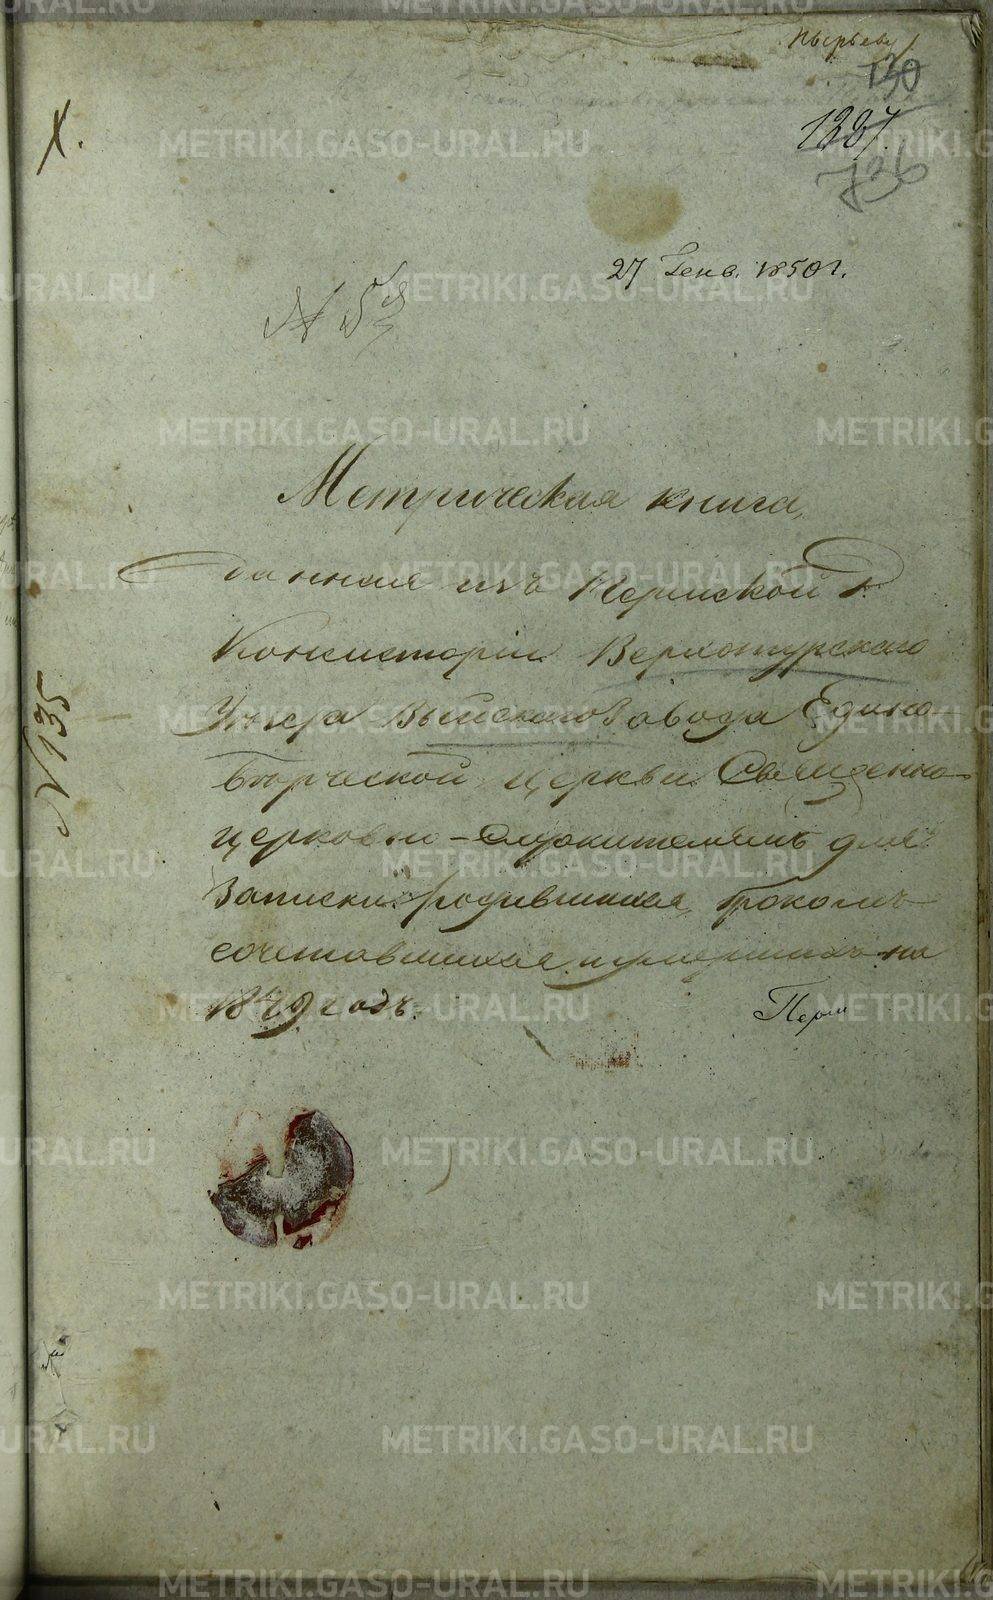 Пырьеву
130
1287.
736
X.
27 Генв. 1850 г.
Метрическая книга,
данная изъ Пермской Д.
Консисторіи Верхотурскаго
Уѣзда Выйскаго Завода Едино-
вѣрческой церкви Священно-
церковно-служителямъ для
Записки родившихся, бракомъ
сочетавшихся и умершихъ на
1849 годъ.
Перм
N 135
METRIKI.GASO-URAL.RU